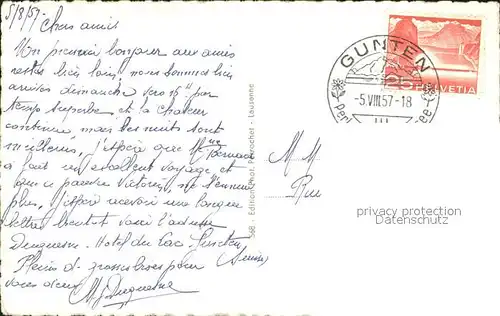 5/8/57. Chers amis
Un premier bonjour aux amis
restés bien loin, nous sommes bien
arrivés dimanche vers 16h par
temps superbe et la chaleur
continue mais les nuits sont
meilleures, j'espère que Mme Bernard
a fait un excellent voyage et
que ce pauvre Victor, ne s'ennuie
plus, j'espère recevoir une longue
lettre bientôt voici l'adresse
Duquesne - Hotel du Lac. Gunten
(Suisse)
Pleins de grosses bises pour
vous deux
M. Duquesne
568 - Edition Phot. Perrochet - Lausanne
GUNTEN
-5.VIII.57-18
HELVETIA
M. M.
Rue
privacy protection
Datenschutz